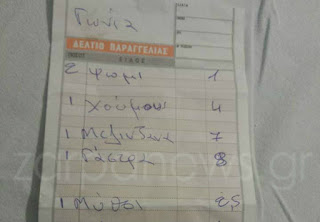 Γωνία
ΔΕΛΤΙΟ ΠΑΡΑΓΓΕΛΙΑΣ
ΕΙΔΟΣ
2 ψωμι 1
1 χούμους 4
1 Μελιτζανα 7
1 Γάσερα 8
1 Μύθοι
zarpanews.gr